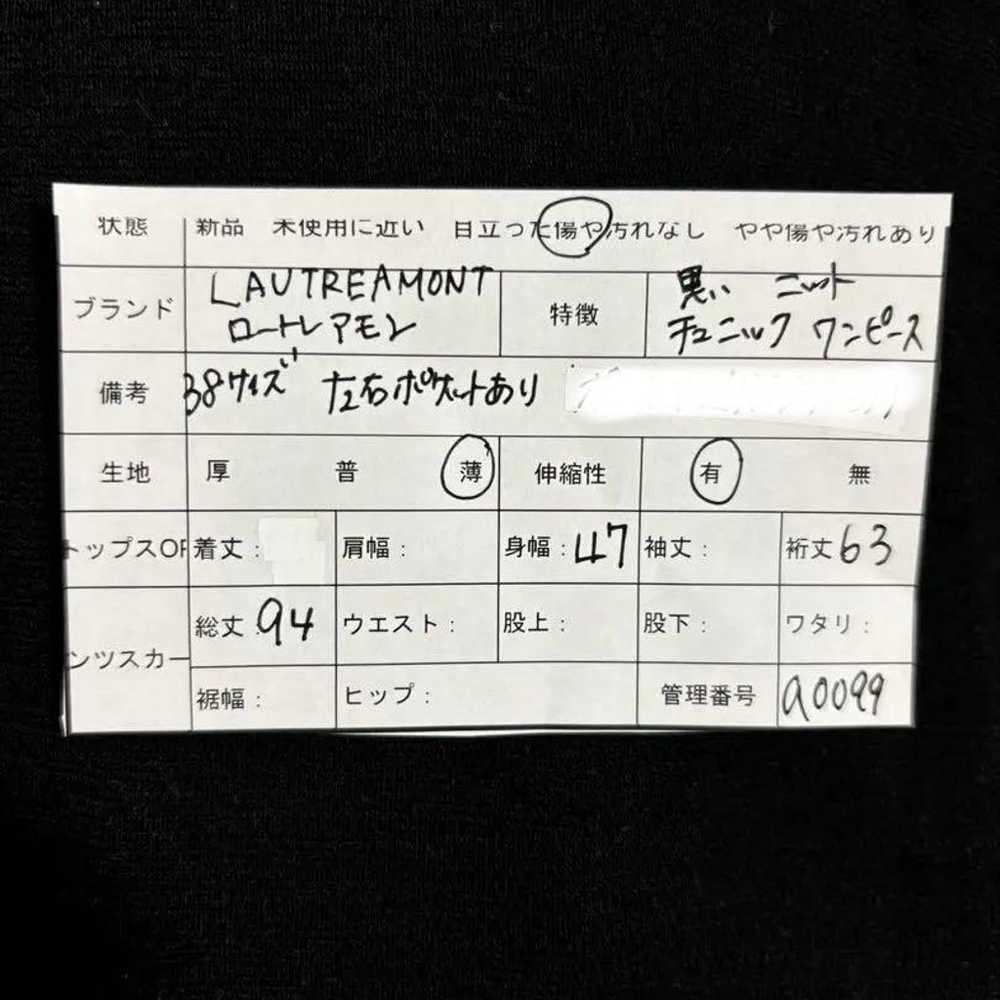 状態 新品 未使用に近い 目立った傷や汚れなし やや傷や汚れあり
ブランド LAUTREAMONT ロートレアモン 特徴 黒い ニット チュニック ワンピース
備考 38サイズ 左右ポケットあり
生地 厚 普 薄 伸縮性 有 無
トップスOP 着丈: 肩幅: 身幅:47 袖丈: 裄丈63
ンツスカー 総丈:94 ウエスト: 股上: 股下: ワタリ:
裾幅: ヒップ: 管理番号 a0099